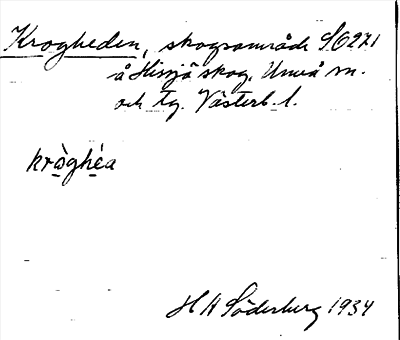 Krogheden, skogsområde SO 271
å Hissjö skog, Umeå sn.
och tg. Västerb. l.
kròghéa
H A Söderberg 1934